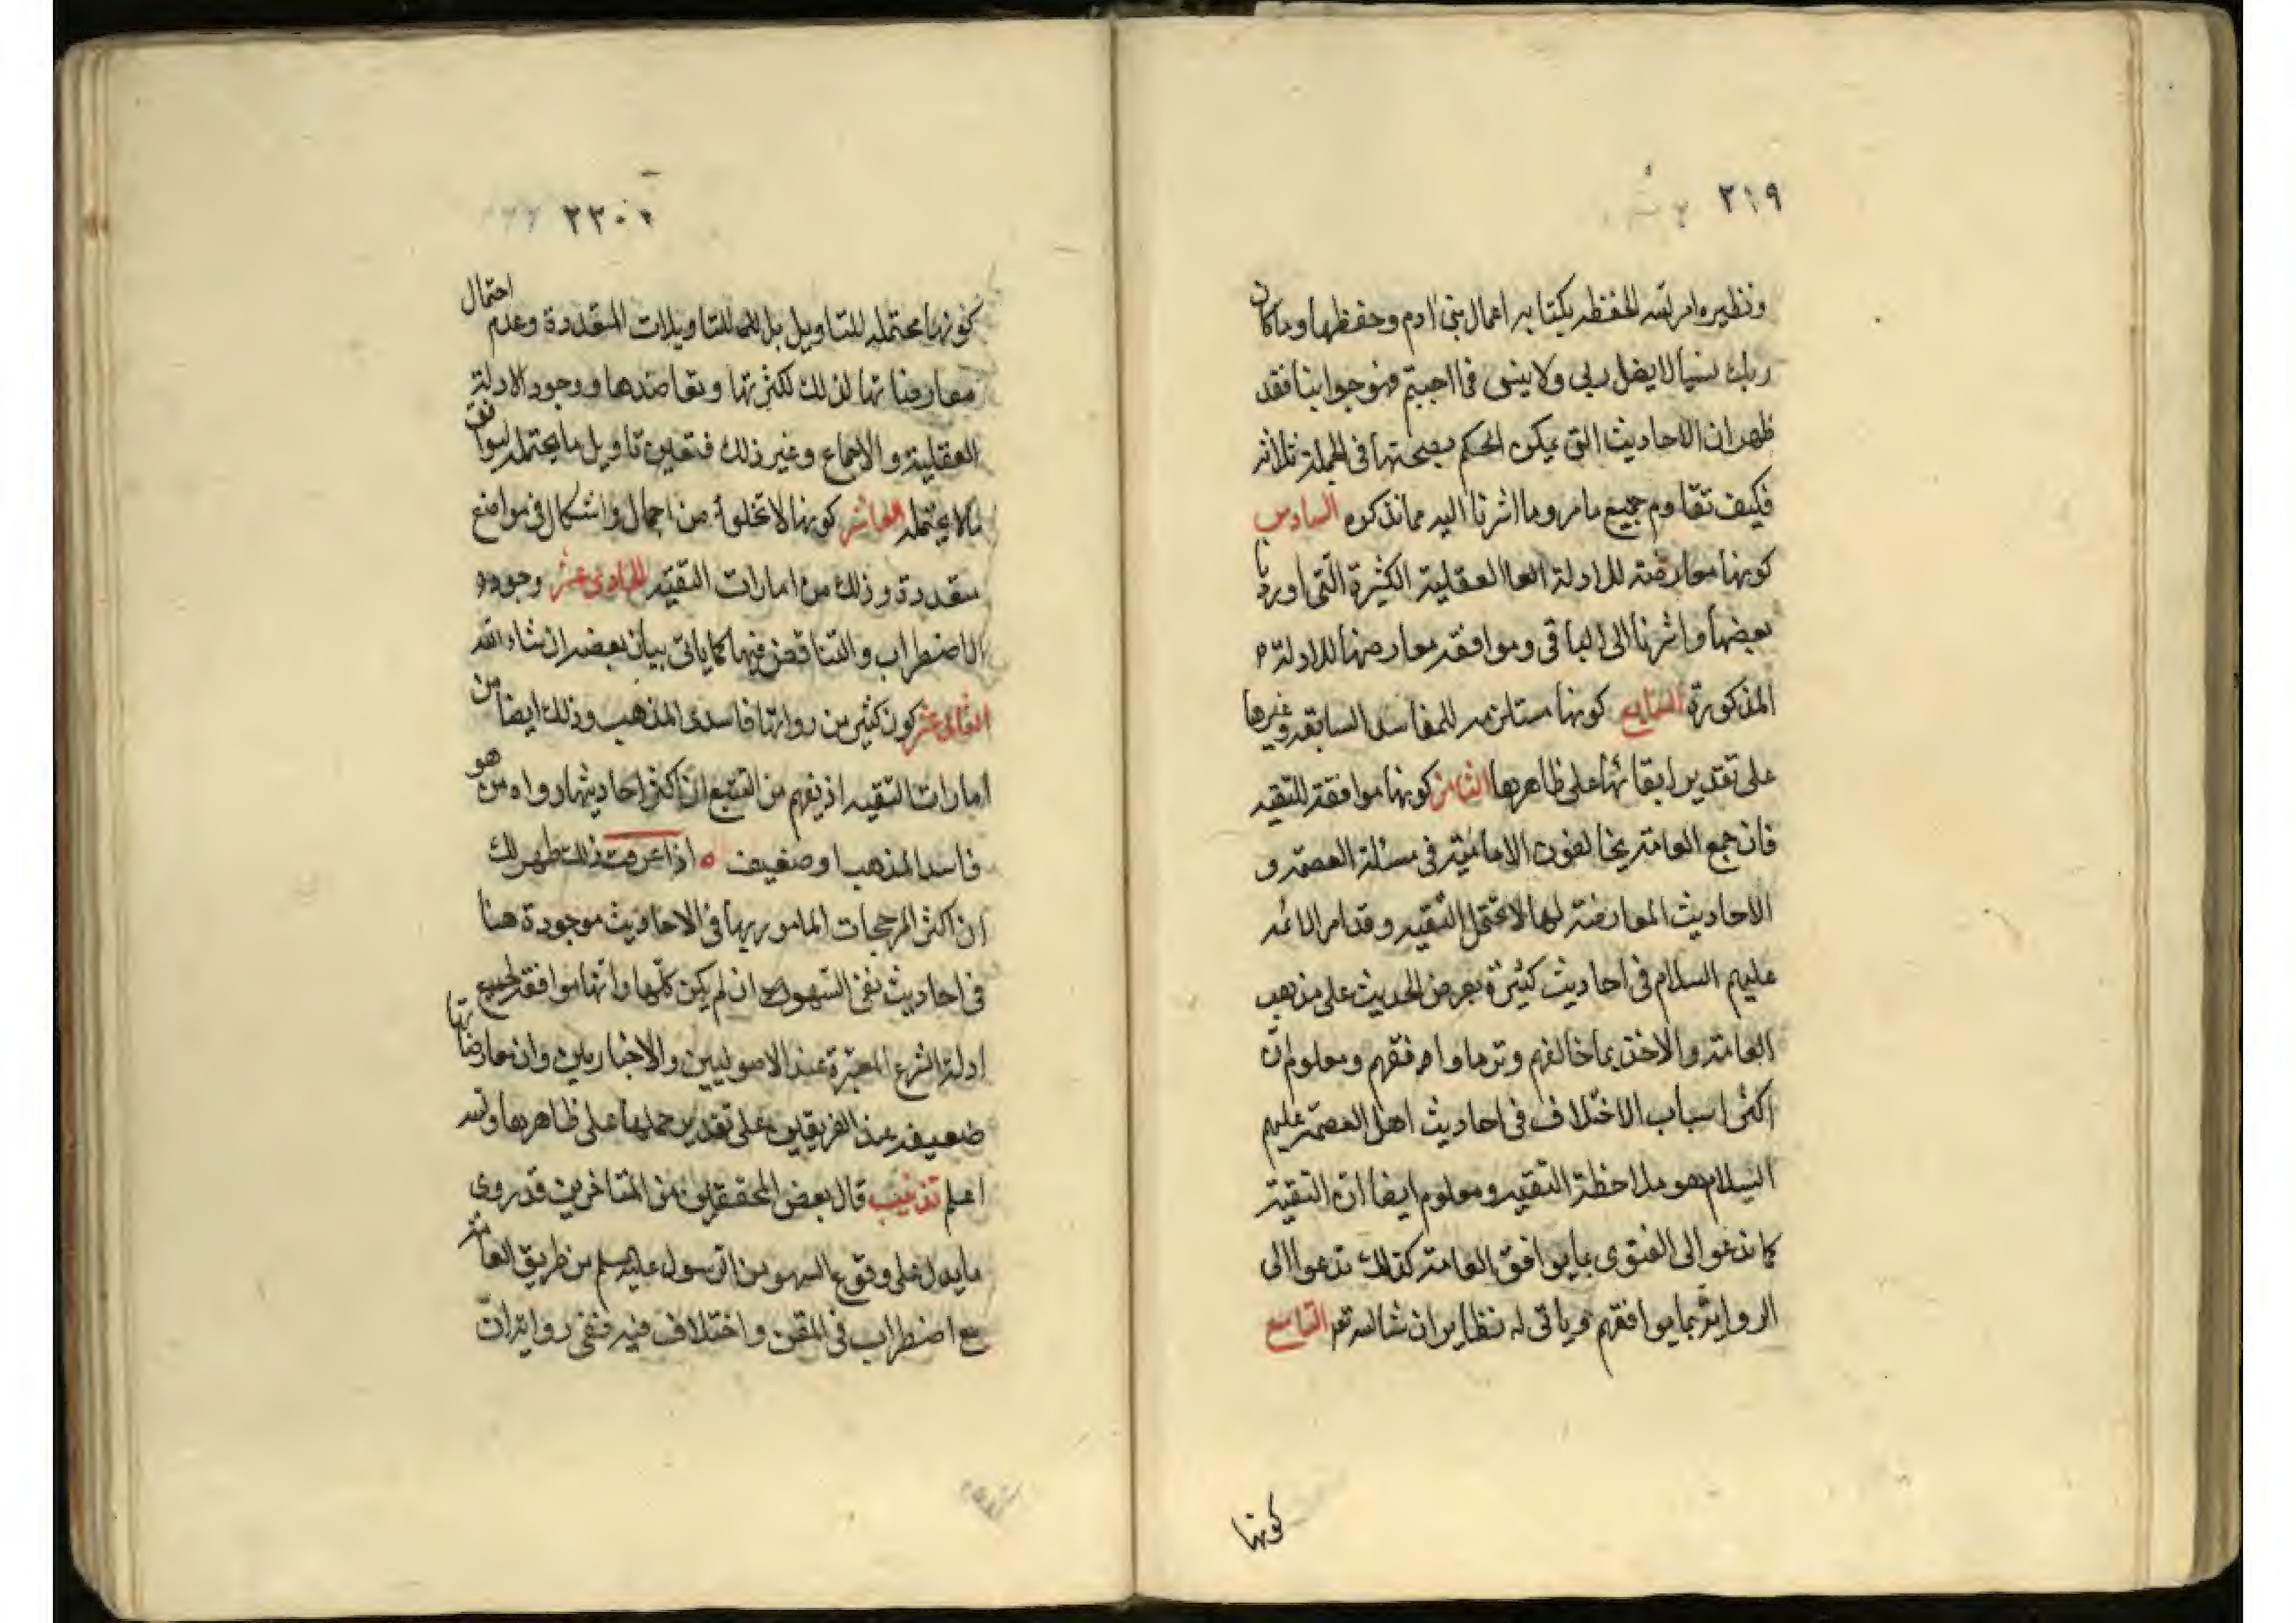 ٢١٩
ونظيره امر الله الحفظه بكتابه اعمال بنى ادم وحفظها وما كان
ربك نسيا لا يضل ربى ولا ينسى فما اجبتم فهو جوابنا فقد
ظهر ان الاحاديث التى يمكن الحكم بصحتها فى الجملة ثلاثه
فكيف تقاوم جميع ما مر وما اشرنا اليه مما نذكره السادس
كونها معارضته للادلة العا العقلية الكثيرة التى اوردنا
بعضها واشرنا الى الباقى وموافقه معارضها للادلة
المذكورة السابع كونها مستلزمه للمفاسد السابقه وغيرها
على تقدير ابقائها على ظاهرها الثامن كونها موافقة للتقيه
فان جمع العامة يخالفون الاماميّة فى مسئلة العصمة و
الاحاديث المعارضة لها لا تحتمل التقيه وقد امر الائمه
عليهم السلام فى احاديث كثيرة بعرض الحديث على مذهب
العامة والاخذ بما خالفهم وترك ما وافقهم ومعلوم انّ
اكثر اسباب الاختلاف فى احاديث اهل العصمة عليهم
السلام هو ملاحظة التقيه ومعلوم ايضا ان التقية
كما تدعو الى الفتوى بما يوافق العامة كذلك تدعوا الى
الرواية بما يوافقهم وياتى له نظاير ان شا الله تعم التاسع
كونها
٢٢٠
كونها محتمله للتاويل بل للتاويلات المتعددة وعدم احتمال
معارضاتها لذلك لكثرتها وتعاضدها ووجود الادلة
العقلية والاجماع وغير ذلك فتعين تاويل ما يحتمله ليوافق
ما لا يحتمله العاشر كونها لا تخلوا من اجمال واشكال فى مواضع
متعددة وذلك من امارات التقيه الحادى عشر وجوده
الاضطراب والتناقض فيها كما ياتى بيان بعضه ان شاء الله
الثانى عشر كون كثير من رواتها فاسدى المذهب وذلك ايضا من
امارات التقيه اذ يفهم من التتبع ان اكثر احاديثها رواه من هو
فاسد المذهب او ضعيف ه اذا عرفت ذلك ظهر لك
ان اكثر المرجحات المامور بها فى الاحاديث موجودة هنا
فى احاديث نفى السّهو ان لم يكن كلّها وانّها موافقة لجميع
ادلة الشرع المعتبرة عند الاصوليين والاخباريين وان معارضاتها
ضعيفه عند الفريقين على تقدير حملها على ظاهرها والله
اعلم تذنيب قال بعض المحققين من المتاخرين قد روى
ما يدل على وقوع السهو من الرسول عليه سلم من طريق العامة
مع اضطراب فى المتن واختلاف فيه ففى رواية انّ